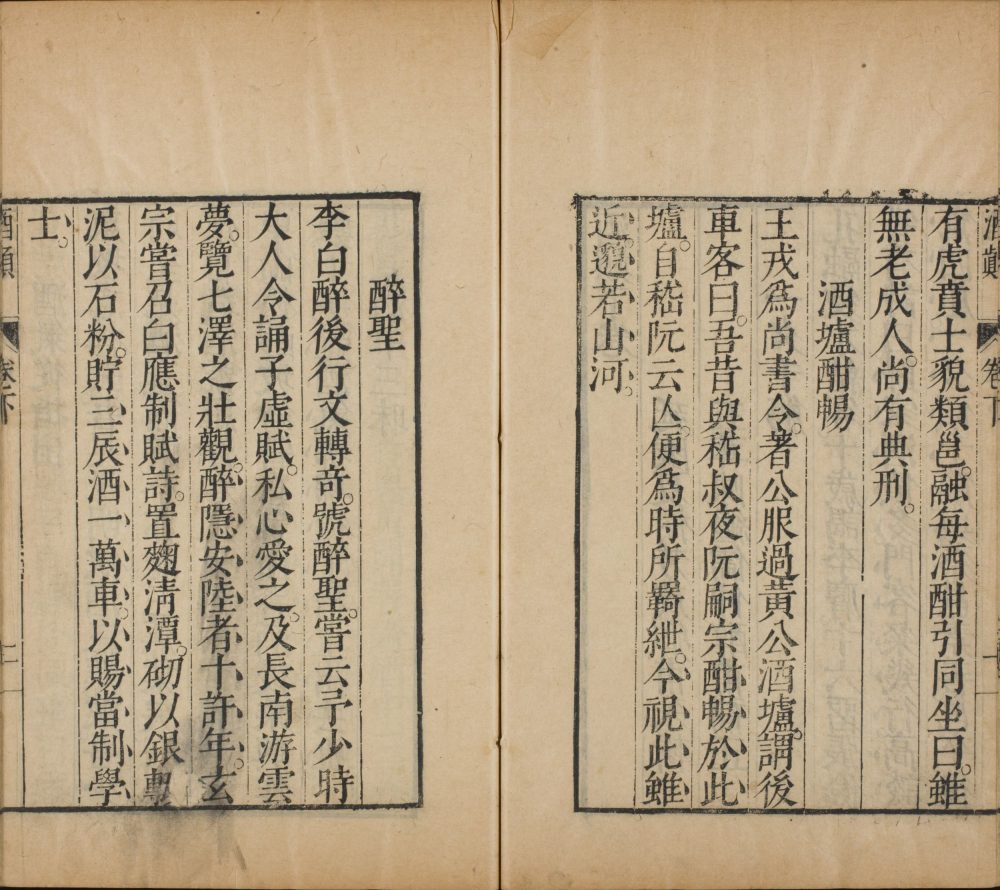 酒顛
卷下
有虎賁士貌類邕。融每酒酣引同坐曰。雖
無老成人。尚有典刑。
酒壚酣暢
王戎爲尚書令。著公服過黃公酒壚。謂後
車客曰。吾昔與嵇叔夜阮嗣宗酣暢於此
壚。自嵇阮云亾。便爲時所羈紲。今視此雖
近。邈若山河。
醉聖
李白醉後行文轉奇。號醉聖。嘗云予少時
大人令誦子虛賦。私心愛之。及長南游雲
夢。覽七澤之壯觀。醉隱安陸者十許年。玄
宗嘗召白應制賦詩。置麴清潭。砌以銀甎
泥以石粉。貯三辰酒一萬車。以賜當制學
士。
酒顛
卷下